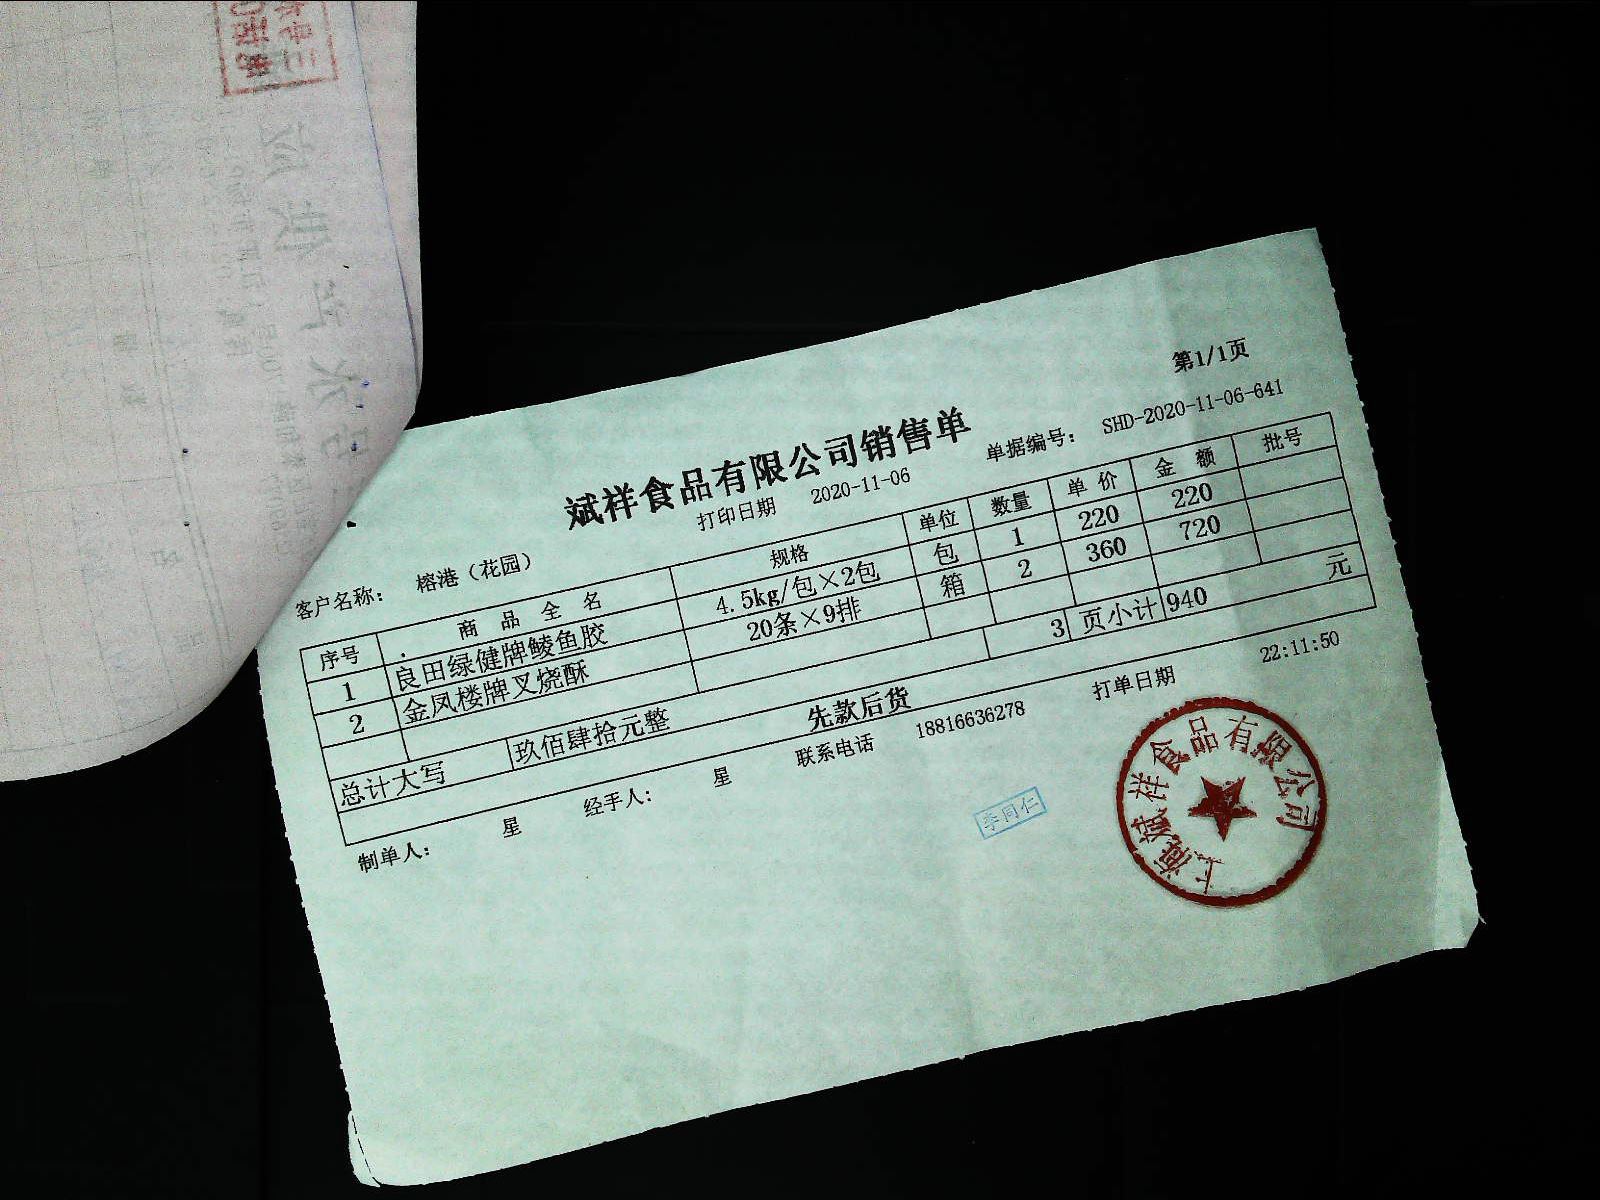 第1/1页
斌祥食品有限公司销售单
打印日期 2020-11-06 单据编号： SHD-2020-11-06-641
客户名称： 榕港（花园）
序号 商品全名 规格 单位 数量 单价 金额 批号
1 良田绿健牌鲮鱼胶 4.5kg/包×2包 包 1 220 220
2 金凤楼牌叉烧酥 20条×9排 箱 2 360 720
总计大写 玖佰肆拾元整 3 页小计 940 元
先款后货
制单人： 星 经手人： 星 联系电话 18816636278 打单日期 22:11:50
李同仁
上海斌祥食品有限公司